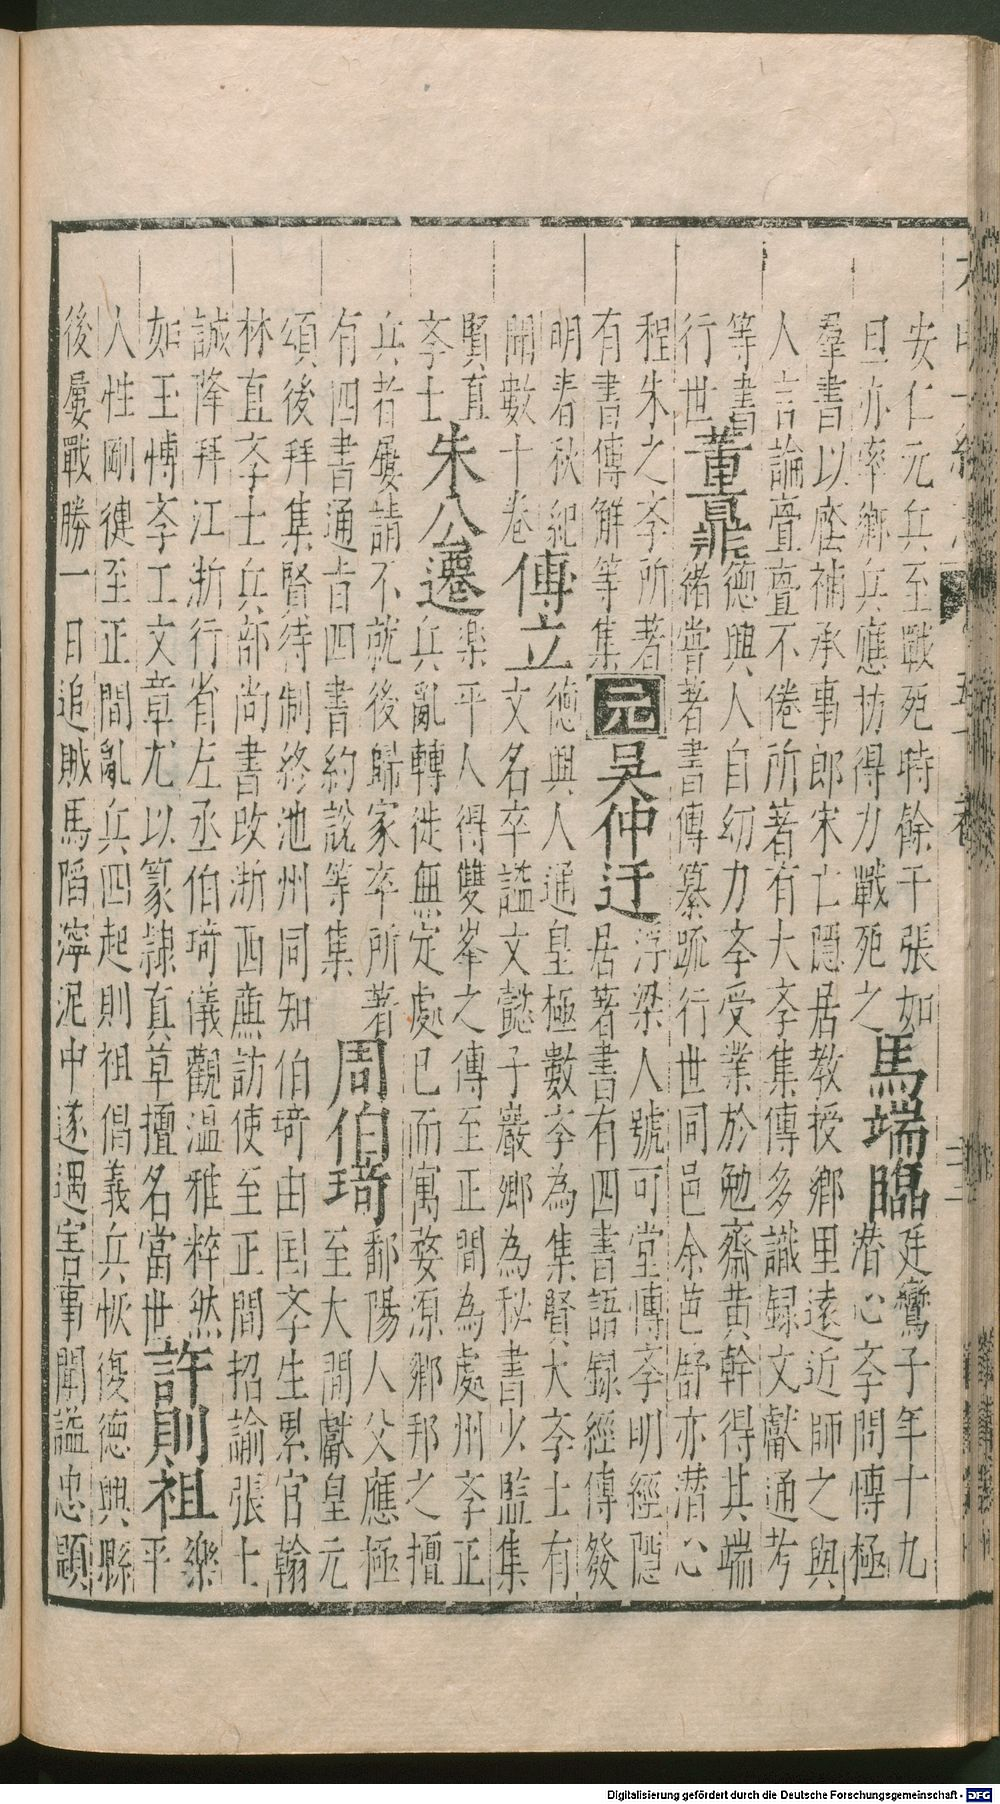 安仁元兵至戰死時餘干張如馬端臨廷鸞子年十九
旦亦率鄉兵應枋得力戰死之　　　潛心斈問愽極
羣書以蔭補承事郎宋亡隱居教授鄉里遠近師之與
人言論亹亹不倦所著有大斈集傳多識録文獻通考
等書董鼎德興人自幼力斈受業於勉齋黃幹得其端
行世　　緒嘗著書傳纂疏行世同邑余芑舒亦潛心
程朱之斈所著　吳仲迂浮梁人號可堂愽斈明經隱
有書傳解等集元　　　居著書有四書語録經傳發
明春秋紀傅立德興人通皇極數斈為集賢大斈士有
聞數十卷　　文名卒謚文懿子巖鄉為秘書少監集
賢直朱公遷樂平人得雙峯之傳至正間為處州斈正
斈士　　　兵亂轉徙無定處已而寓婺源鄉邦之擅
兵者屢請不就後歸家卒所著周伯琦鄱陽人父應極
有四書通旨四書約說等集　　　　至大間獻皇元
頌後拜集賢待制終池州同知伯琦由国斈生累官翰
林直斈士兵部尚書改浙西廉訪使至正間招諭張士
誠降拜江浙行省左丞伯琦儀觀温雅粹然許則祖樂
如玉愽斈工文章尤以篆隸真草擅名當世　　　平
人性剛徤至正間亂兵四起則祖倡義兵恢復德興縣
後屢戰勝一日追賊馬陷濘泥中遂遇害事聞謚忠顯
Digitalisierung gefördert durch die Deutsche Forschungsgemeinschaft - DFG